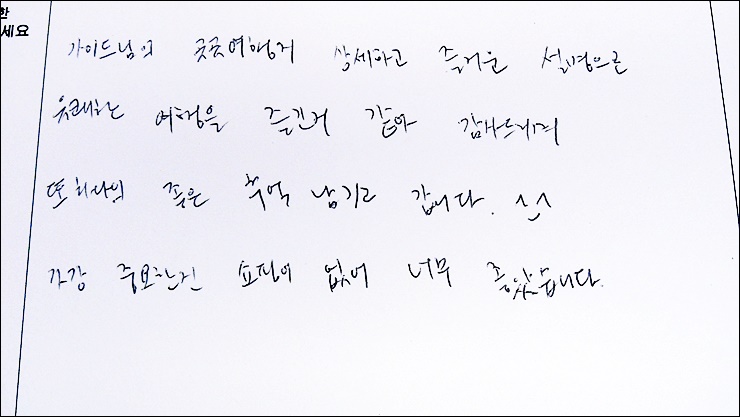 한
세요
가이드님의 곳곳여행지 상세하고 즐거운 설명으로
유쾌하는 여행을 즐긴거 같아 감사드리며
또 하나의 좋은 추억 남기고 갑니다. ^_^
가장 중요한건 쇼핑이 없어 너무 좋았습니다.